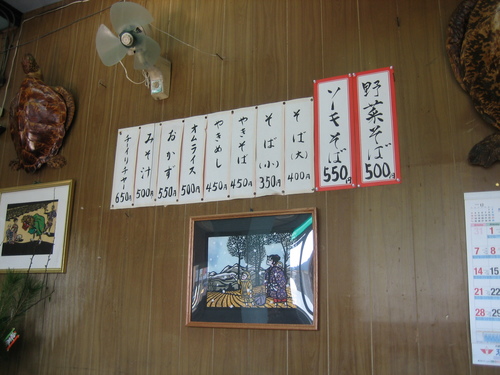 野菜そば 500円
ソーキそば 550円
そば(大) 400円
そば(小) 350円
やきそば 450円
やきめし 450円
オムライス 500円
おかず 550円
みそ汁 500円
チーイリチャー 650円
1
7 8
14 15
21 22
28 29